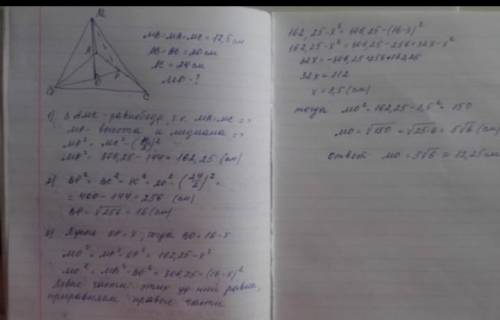 M
MB=MA=MC=17,5см
AB=BC=20см
AC=24см
MO-?
1) Δ AMC - равнобедр, т.к. MA=MC =>
MP- высота и медиана =>
MP² = MC² - 
MP² = 306,25 - 144 = 162,25 (см)
2) BP² = BC² - PC² = 20² - (24/2)² =
= 400 - 144 = 256
BP = √256 = 16 (см)
3) Пусть OP = x, тогда BO = 16 - x
MO² = MP² - OP² = 162,25 - x²
MO² = MB² - BO² = 306,25 - (16-x)²
Левые части этих ур-ний равны,
приравняем правые части
162,25 - x² = 306,25 - (16-x)²
162,25 - x² = 306,25 - 256 + 32x - x²
32x = -306,25 + 256 + 162,25
32x = 112
x = 3,5 (см)
тогда MO² = 162,25 - 3,5² = 150
MO = √150 = √25·6 = 5√6 (см)
ответ MO = 5√6 ≈ 12,25см